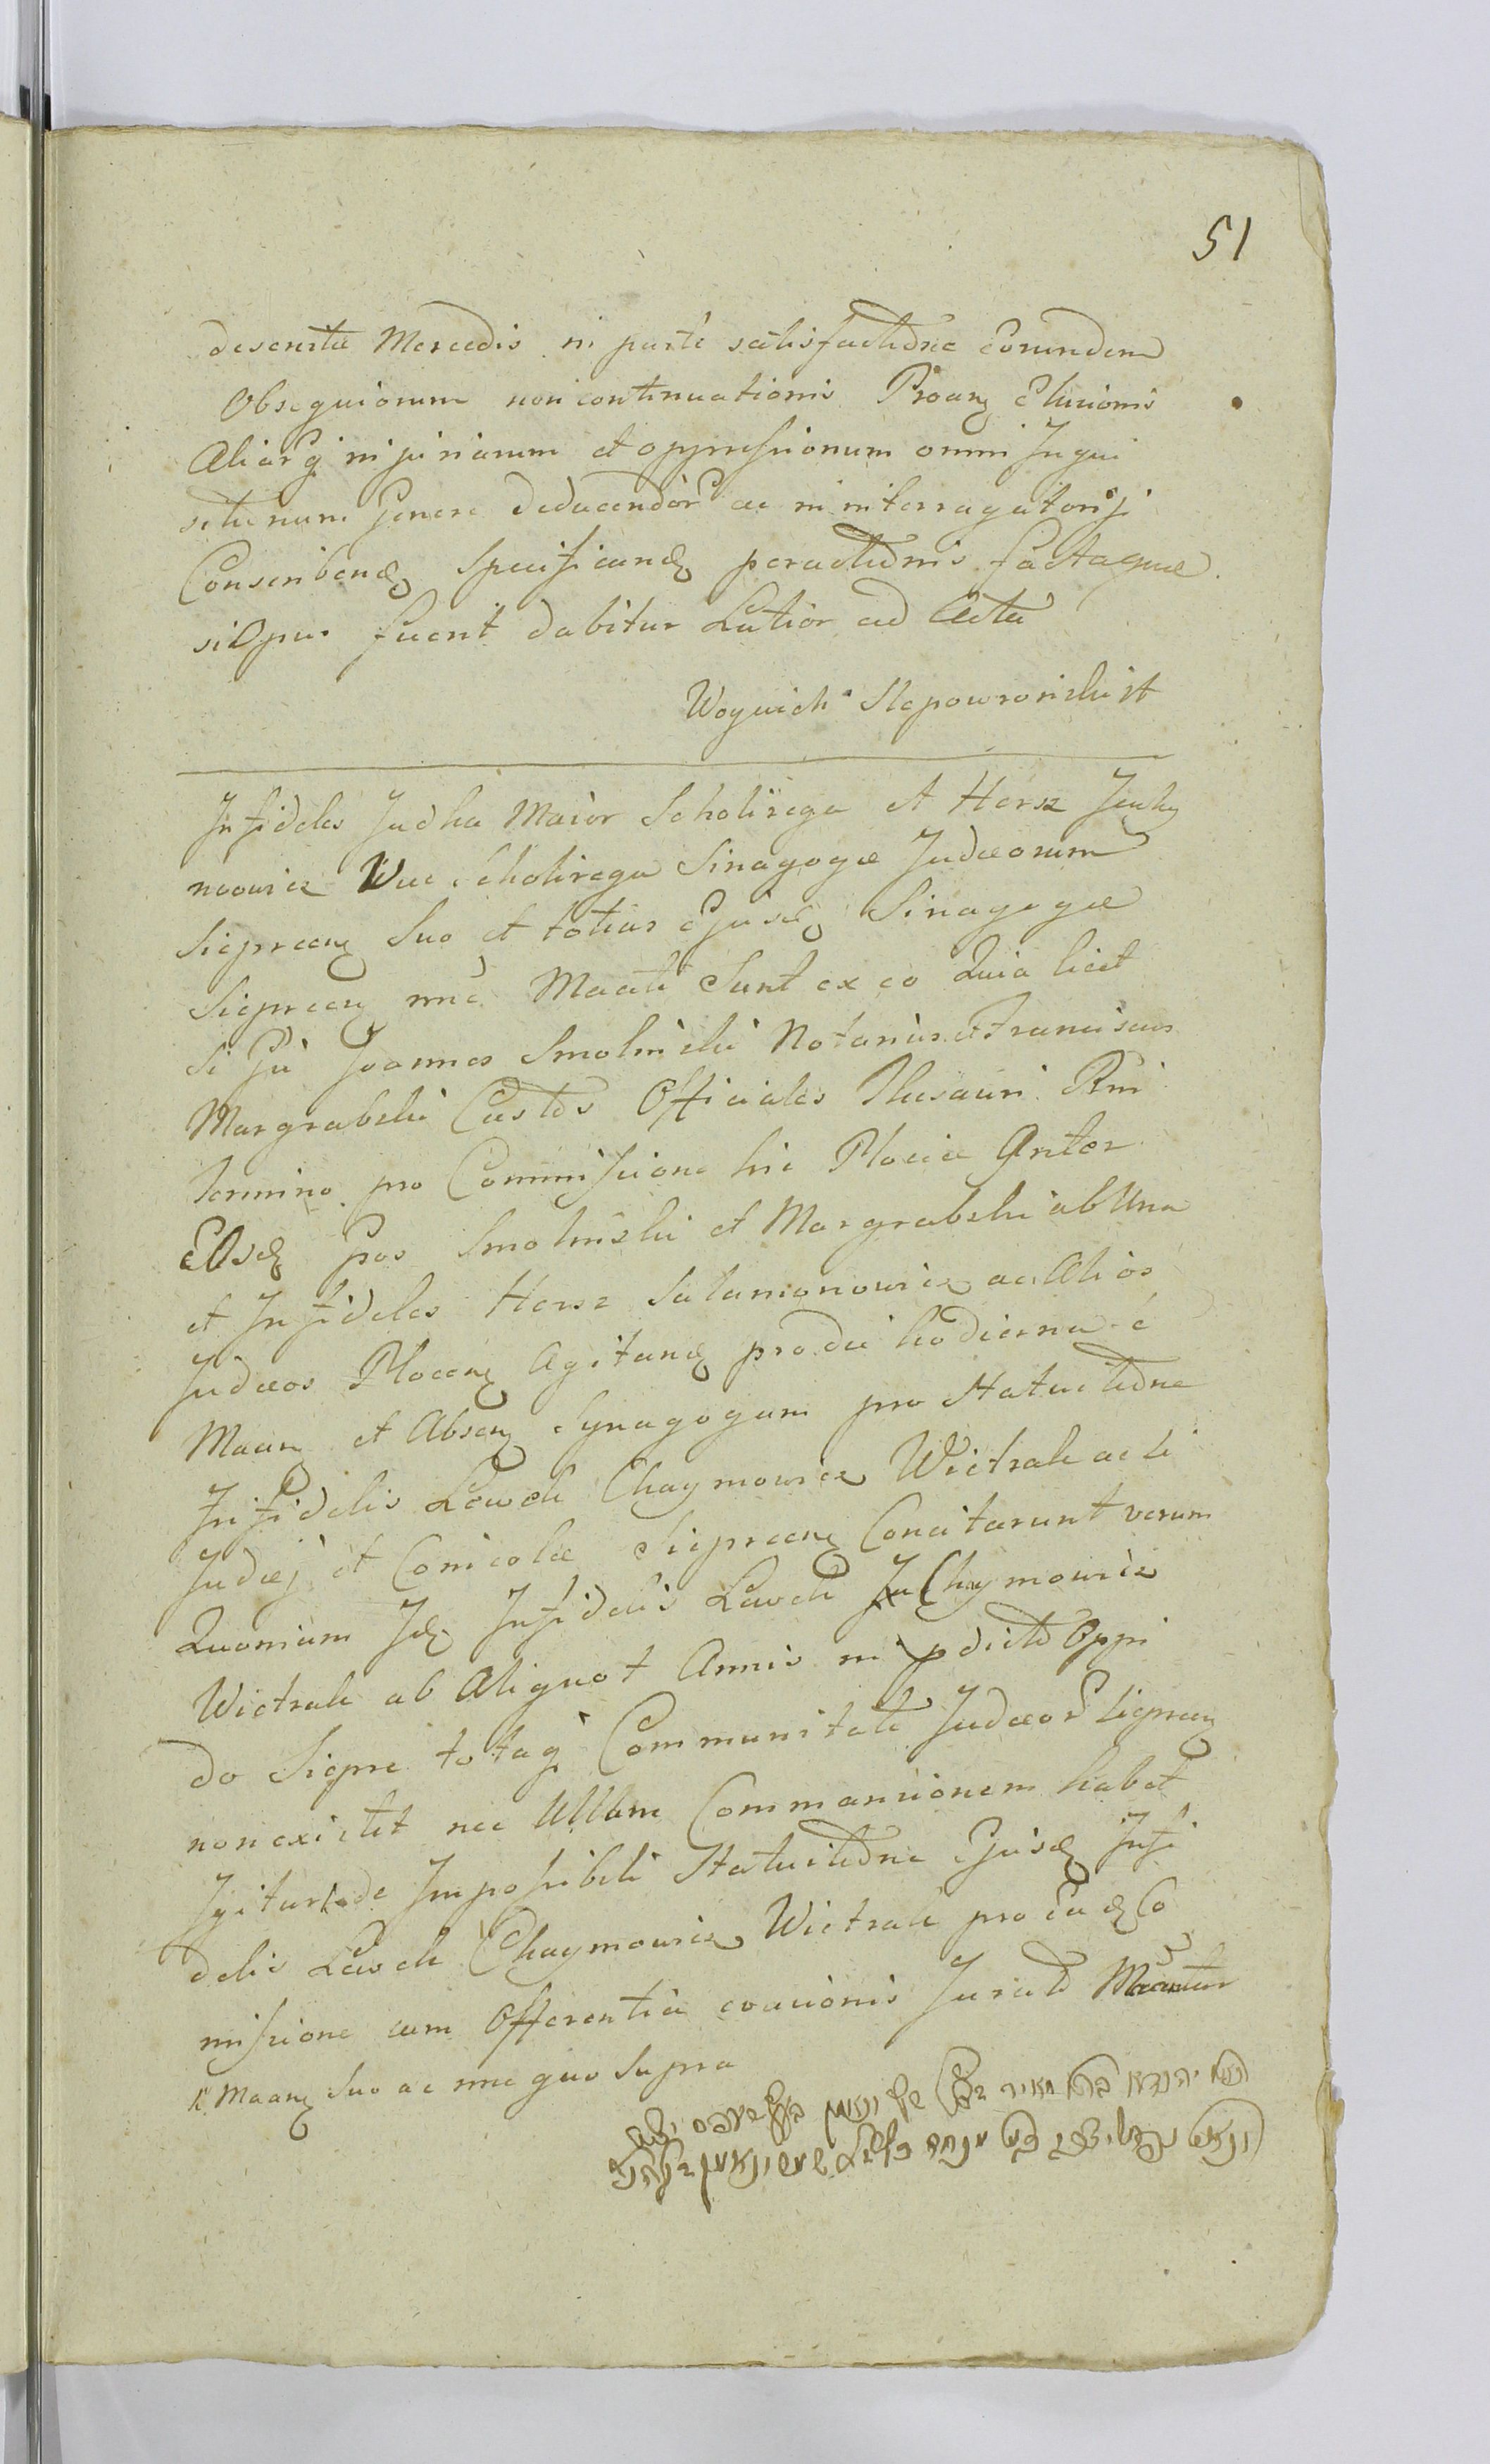 51
deseruitae Mercedis in parte satisfactione eorundem
Obsequiorum non continuationis Proany Elusionis
Aliarq injuriarum et oppressionum omni Inqui
sitionum genere deducendor ac in interrogatorij
Conscribend specificand peractionis factaque
si Opus fuerit dabitur Latior ad Acta
Woyciech Slepowronski
Infideles Judka Maior Scholirega et Hersz Jenky
nowicz Vice Scholirega Sinagogae Judaeorum
Sieprcen Suo et totius Ejusd Sinagogae
Sieprcen nne Maati Sunt ex eo Quia licet
Joannes Smolinski Notarius et Franciscus
Margrabski Custos Officiales Thesauri Rni
termino pro Commissione hic Plociae Inter
Eosd Gos Smolinski et Margrabski ab Una
et Infideles Hersz Salamonowicz ac Alios
Judaeos Plocen Agitand pro die hodierna
Maan et Absen Synagogam pro Statuitione
Infidelis Lewek Chaymowicz Wietrak acti
Judaej et Conicolae Sieprcen Concitarunt verum
Quoniam Id Infidelis Lewek Chymowicz
Wietrak ab Aliquot Annis in pdicto Oppi
do Siepre totaq Communitate Judaeor Sieprcen
non existit nec Ullam Commansionem habet
Igitur de Impossibili Statuitione Ejusd Infi
delis Lewek Chaymowicz Wietrak pro ead Co
missione cum Offerentia evasionis Jurato Maantur
Maany Suo ac nne quo Supra
יהודא מאיר